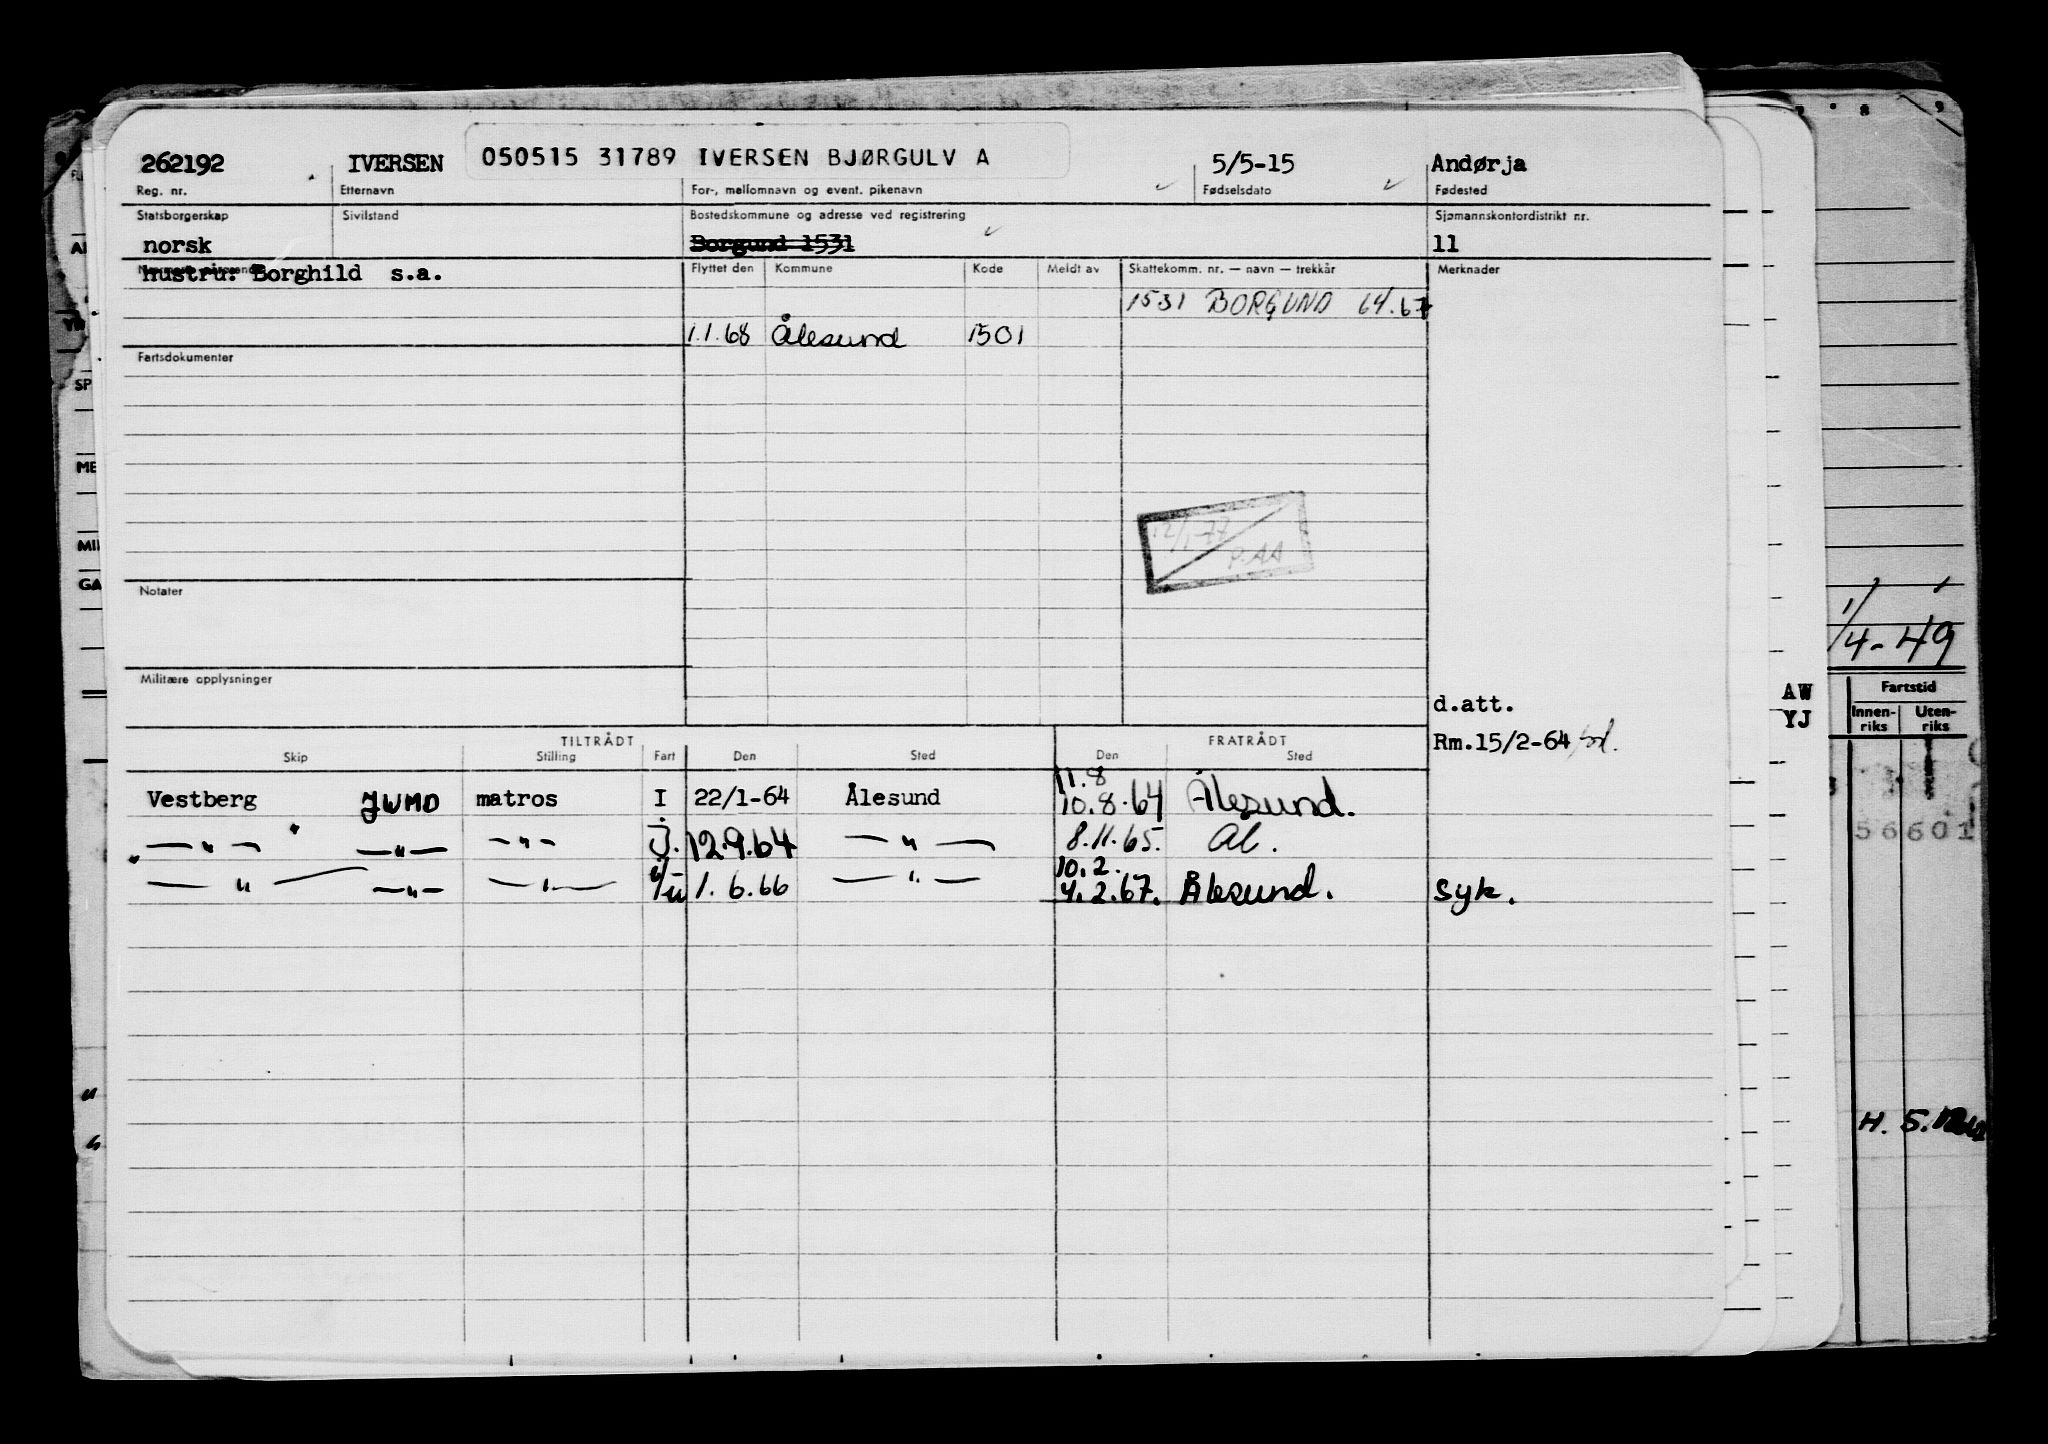 262192 IVERSEN 050515 31789 IVERSEN BJØRGULV A 5/5-15 Andørja
Reg. nr. Etternavn For-, mellomnavn og event. pikenavn Fødselsdato Fødested
Statsborgerskap Sivilstand Bostedskommune og adresse ved registrering Sjømannskontordistrikt nr.
norsk Borgund 1531 11
hustru: Borghild s.a. Flyttet den Kommune Kode Meldt av Skattekomm. nr. — navn — trekkår Merknader
1531 BORGUND 64.67
1.1.68 Ålesund 1501
Fartsdokumenter
12/1-77
P.AA
Notater
Militære opplysninger
d.att.
Rm.15/2-64
TILTRÅDT FRATRÅDT
Skip Stilling Fart Den Sted Den Sted
11.8
Vestberg JWMD matros I 22/1-64 Ålesund 10.8.64 Ålesund.
— " — — " — — " — I. 12.9.64 — " — 8.11.65. Ål.
10.2.
— " — — " — — " — I/U 1.6.66 — " — 4.2.67. Ålesund. syk.
1/4-49
AW
YJ
Fartstid
Innen-riks Uten-riks
56601
H. 5.
SP
ME
MIL
GA